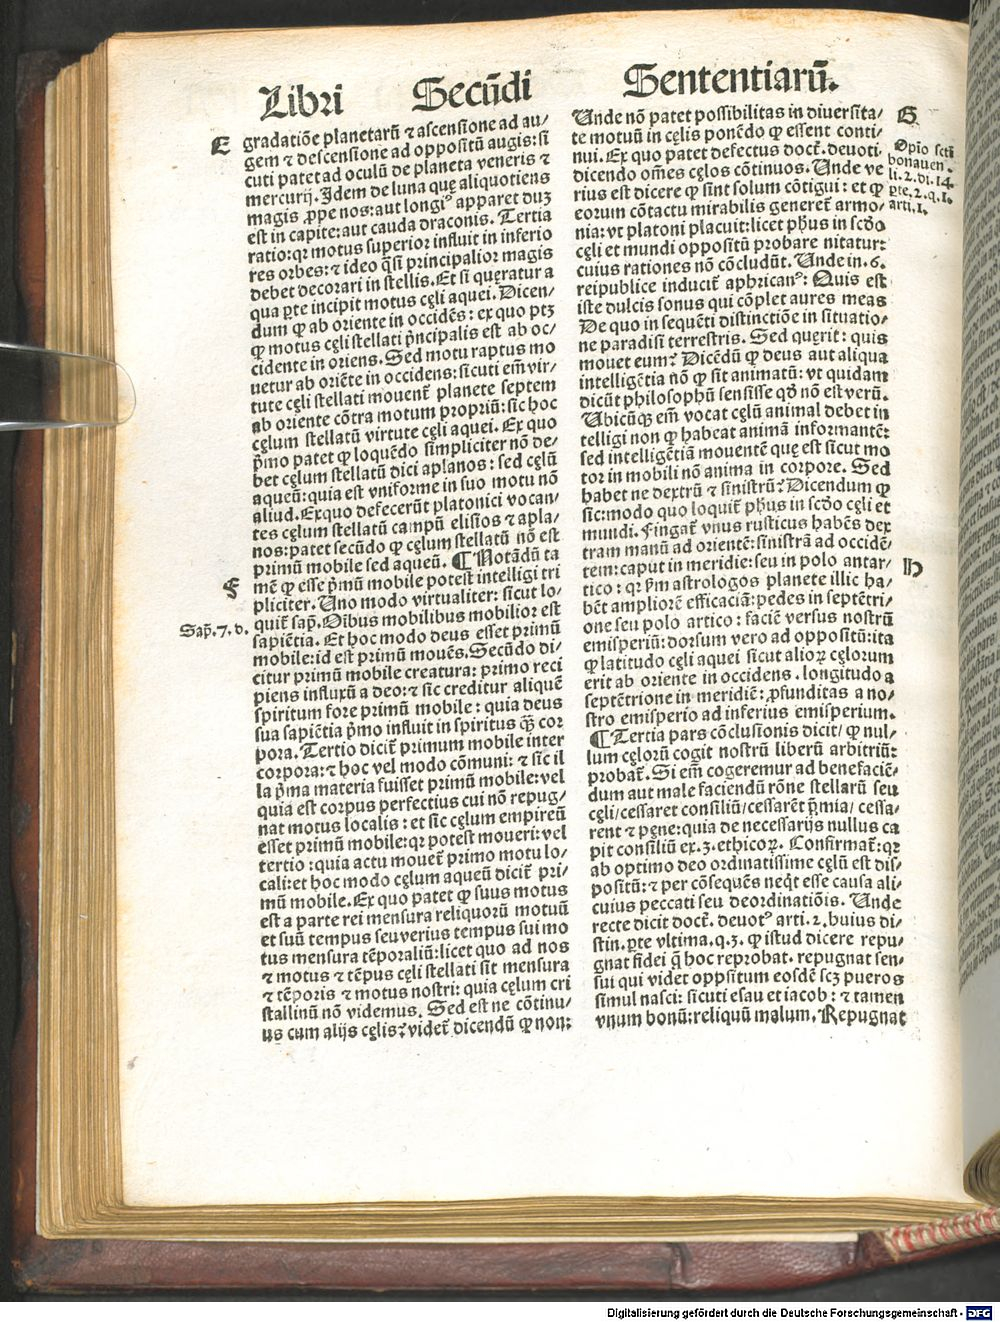 Libri Secūdi Sententiarū.
E
gradatiōe planetarū ⁊ ascensione ad au/
gem ⁊ descensione ad oppositū augis: si
cuti patet ad oculū de planeta veneris ⁊
mercurij. Idem de luna quę aliquotiens
magis ꝓpe nos: aut longiꝰ apparet duꝫ
est in capite: aut cauda draconis. Tertia
ratio: qꝛ motus superior influit in inferio
res orbes: ⁊ ideo q̄si principalior magis
debet decorari in stellis. Et si quęratur a
qua ꝑte incipit motus cęli aquei. Dicen/
dum ꝙ ab oriente in occidēs: ex quo ptꝫ
ꝙ motus cęli stellati p̄ncipalis est ab oc/
cidente in oriens. Sed motu raptus mo
uetur ab oriēte in occidens: sicuti em̄ vir/
tute cęli stellati mouent̄ planete septem
ab oriente cōtra motum propriū: sic hoc
cęlum stellatū virtute cęli aquei. Ex quo
p̄mo patet ꝙ loquēdo simpliciter nō de/
bet cęlum stellatū dici aplanos: sed cęlū
aqueū: quia est vniforme in suo motu nō
aliud. Ex quo defecerūt platonici vocan/
tes cęlum stellatū campū elisios ⁊ apla/
nos: patet secūdo ꝙ cęlum stellatū nō est
primū mobile sed aqueū. ¶ Notādū ta
F
mē ꝙ esse p̄mū mobile potest intelligi tri
pliciter. Uno modo virtualiter: sicut lo/
Sap̄. 7. d.
quit̄ sap̄. Oībus mobilibus mobilior est
sapiētia. Et hoc modo deus esset primū
mobile: id est primū mouēs. Secūdo di/
citur primū mobile creatura: primo reci
piens influxū a deo: ⁊ sic creditur aliquē
spiritum fore primū mobile: quia deus
sua sapiētia p̄mo influit in spiritus q̄ꝫ cor
pora. Tertio dicit̄ primum mobile inter
corpora: ⁊ hoc vel modo cōmuni: ⁊ sic il
la p̄ma materia fuisset primū mobile: vel
quia est corpus perfectius cui nō repug/
nat motus localis: et sic cęlum empireū
esset primū mobile: qꝛ potest moueri: vel
tertio: quia actu mouet̄ primo motu lo/
cali: et hoc modo cęlum aqueū dicit̄ pri/
mū mobile. Ex quo patet ꝙ suus motus
est a parte rei mensura reliquorū motuū
et suū tempus seu verius tempus sui mo
tus mensura tēporaliū: licet quo ad nos
⁊ motus ⁊ tēpus cęli stellati sit mensura
⁊ tēporis ⁊ motus nostri: quia cęlum cri
stallinū nō videmus. Sed est ne cōtinu/
us cum alijs cęlis? videt̄ dicendū ꝙ non:
Unde nō patet possibilitas in diuersita/
G
te motuū in cęlis ponēdo ꝙ essent conti/
nui. Ex quo patet defectus doct̄. deuoti
Opīo scti
bonauen.
li. 2. di. 14.
ꝑte. 2. q. 1.
arti. 1.
dicendo om̄es cęlos cōtinuos. Unde ve
rius est dicere ꝙ sint solum cōtigui: et ꝙ
eorum cōtactu mirabilis generet̄ armo/
nia: vt platoni placuit: licet ph̄us in scd̄o
cęli et mundi oppositū probare nitatur:
cuius rationes nō cōcludūt. Unde in. 6.
reipublice inducit̄ aphricanꝰ: Quis est
iste dulcis sonus qui cōplet aures meas
De quo in sequēti distinctiōe in situatio/
ne paradisi terrestris. Sed querit̄: quis
mouet eum? Dicēdū ꝙ deus aut aliqua
intelligētia nō ꝙ sit animatū: vt quidam
dicūt philosophū sensisse qd̄ nō est verū.
Ubicūqꝫ em̄ vocat cęlū animal debet in
telligi non ꝙ habeat animā informantē:
sed intelligētiā mouentē quę est sicut mo
tor in mobili nō anima in corpore. Sed
habet ne dextrū ⁊ sinistrū? Dicendum ꝙ
sic: modo quo loquit̄ ph̄us in scd̄o cęli et
mundi. Fingat̄ vnus rusticus habēs dex
tram manū ad orientē: sinistrā ad occidē/
tem: caput in meridie: seu in polo antar/
H
tico: qꝛ p̄m astrologos planete illic ha/
bēt ampliorē efficaciā: pedes in septētri/
one seu polo artico: faciē versus nostrū
emisperiū: dorsum vero ad oppositū: ita
ꝙ latitudo cęli aquei sicut alioꝝ cęlorum
erit ab oriente in occidens. longitudo a
septētrione in meridiē: ꝓfunditas a no/
stro emisperio ad inferius emisperium.
¶ Tertia pars cōclusionis dicit/ ꝙ nul/
lum cęlorū cogit nostrū liberū arbitriū:
probat̄. Si em̄ cogeremur ad benefaciē/
dum aut male faciendū rōne stellarū seu
cęli/ cessaret consiliū/ cessarēt p̄mia/ cessa/
rent ⁊ pęne: quia de necessarijs nullus ca
pit consiliū ex. 3. ethicoꝝ. Confirmat̄: qꝛ
ab optimo deo ordinatissime cęlū est dis/
positū: ⁊ per cōsequēs neq̄t esse causa ali/
cuius peccati seu deordinatiōis. Unde
recte dicit doct̄. deuotꝰ arti. 2. huius di/
stin. ꝑte vltima. q. 3. ꝙ istud dicere repu/
gnat fidei q̄ hoc reprobat. repugnat sen/
sui qui videt opp̄situm eosdē scꝫ pueros
simul nasci: sicuti esau et iacob: ⁊ tamen
vnum bonū: reliquū malum. Repugnat
Digitalisierung gefördert durch die Deutsche Forschungsgemeinschaft - DFG